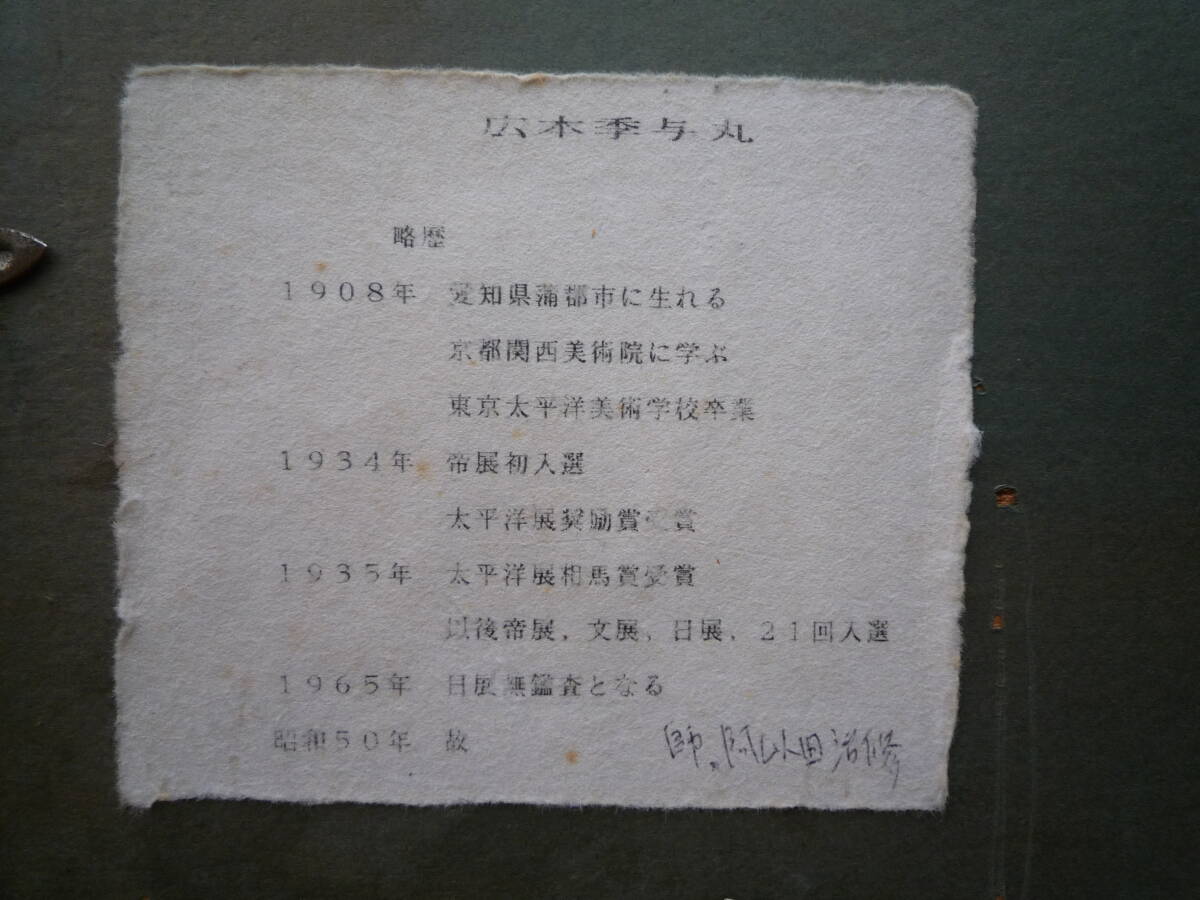 広本季与丸
略歴
1908年 愛知県蒲郡市に生れる
京都関西美術院に学ぶ
東京太平洋美術学校卒業
1934年 帝展初入選
太平洋展奨励賞受賞
1935年 太平洋展相馬賞受賞
以後帝展，文展，日展，21回入選
1965年 日展無鑑査となる
昭和50年 故
師、阿以田治修